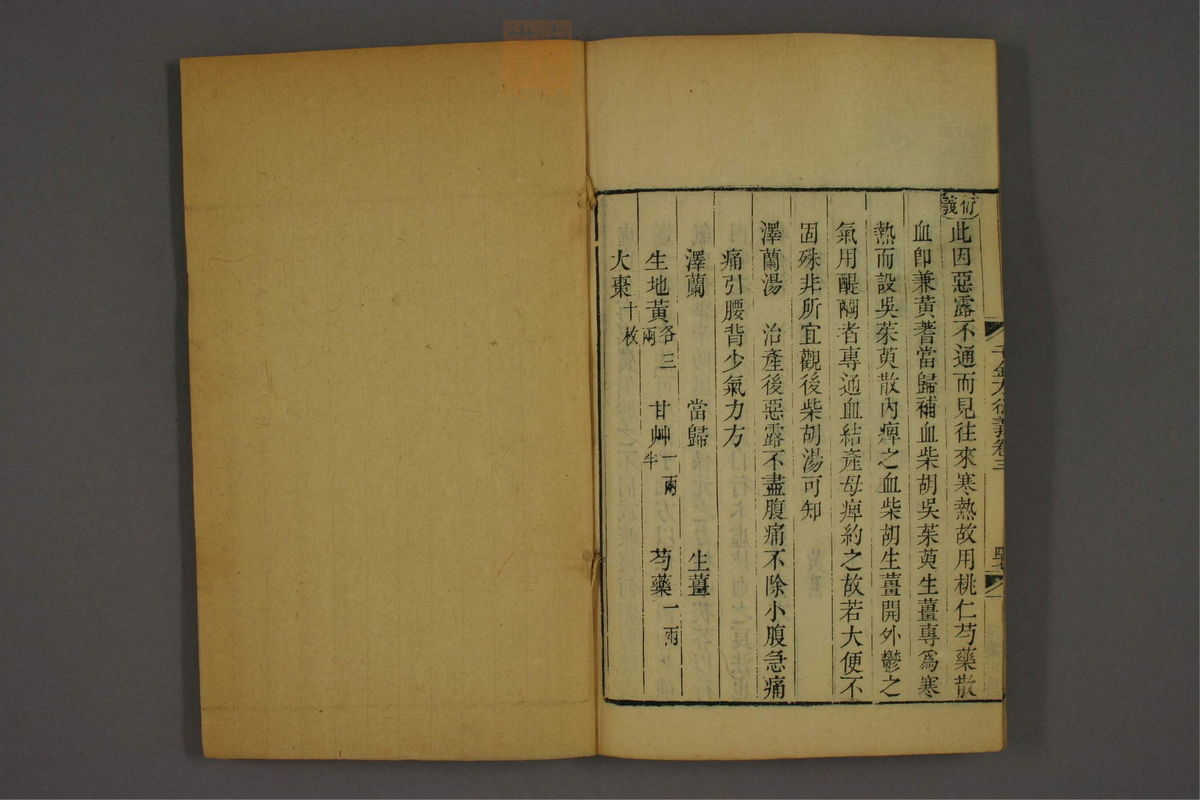 衍義此因惡露不通而見往來寒熱故用桃仁芍藥散
血卽兼黃耆當歸補血柴胡吳茱萸生薑專爲寒
熱而設吳茱萸散內痺之血柴胡生薑開外鬱之
氣用醍醐者專通血結產母痺約之故若大便不
固殊非所宜觀後柴胡湯可知
澤蘭湯 治產後惡露不盡腹痛不除小腹急痛
痛引腰背少氣力方
澤蘭 當歸 生薑
生地黃各三兩 甘艸一兩半 芍藥一兩
大棗十枚
千金方衍義卷三